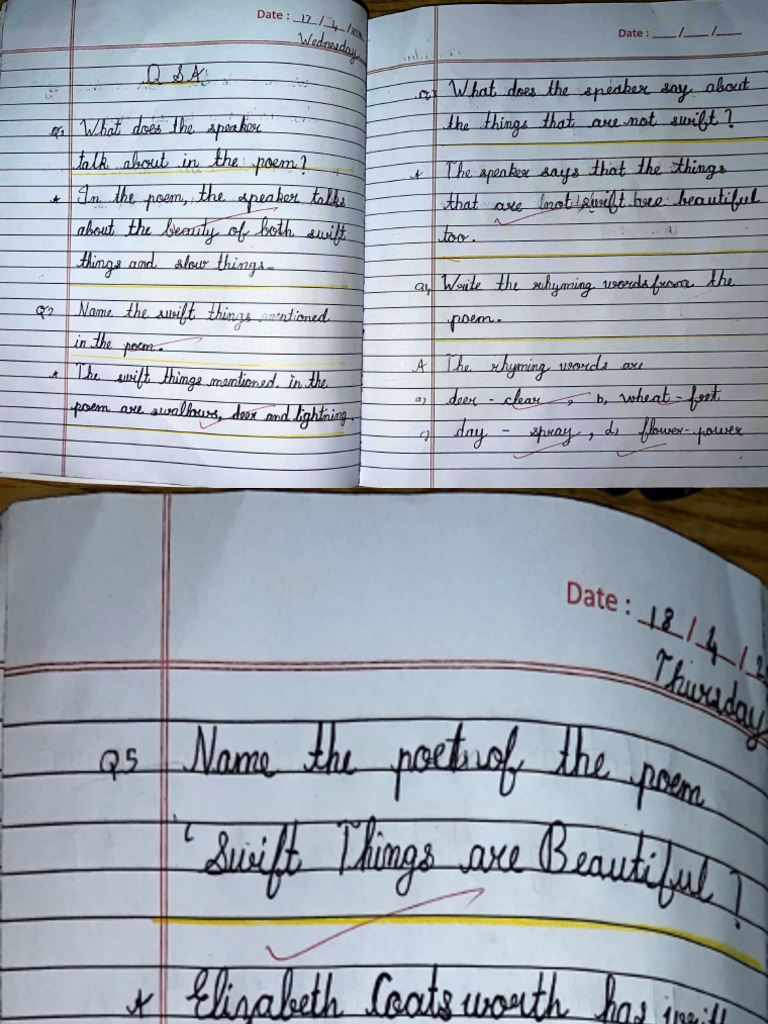 Date : 17/4/
Wednesday
Q & A
Q1 What does the speaker
talk about in the poem?
* In the poem, the speaker talks
about the beauty of both swift
things and slow things.
Q2 Name the swift things mentioned
in the poem.
* The swift things mentioned in the
poem are swallows, deer and lightning.
Date : __/__/__
Q3 What does the speaker say about
the things that are not swift?
* The speaker says that the things
that are not swift are beautiful
too.
Q4 Write the rhyming words from the
poem.
A The rhyming words are
a) deer - clear, b, wheat - feet
c) day - spray, d, flower - power
Date : 18/4/2
Thursday
Q5 Name the poet of the poem
'Swift Things are Beautiful?
* Elizabeth Coatsworth has